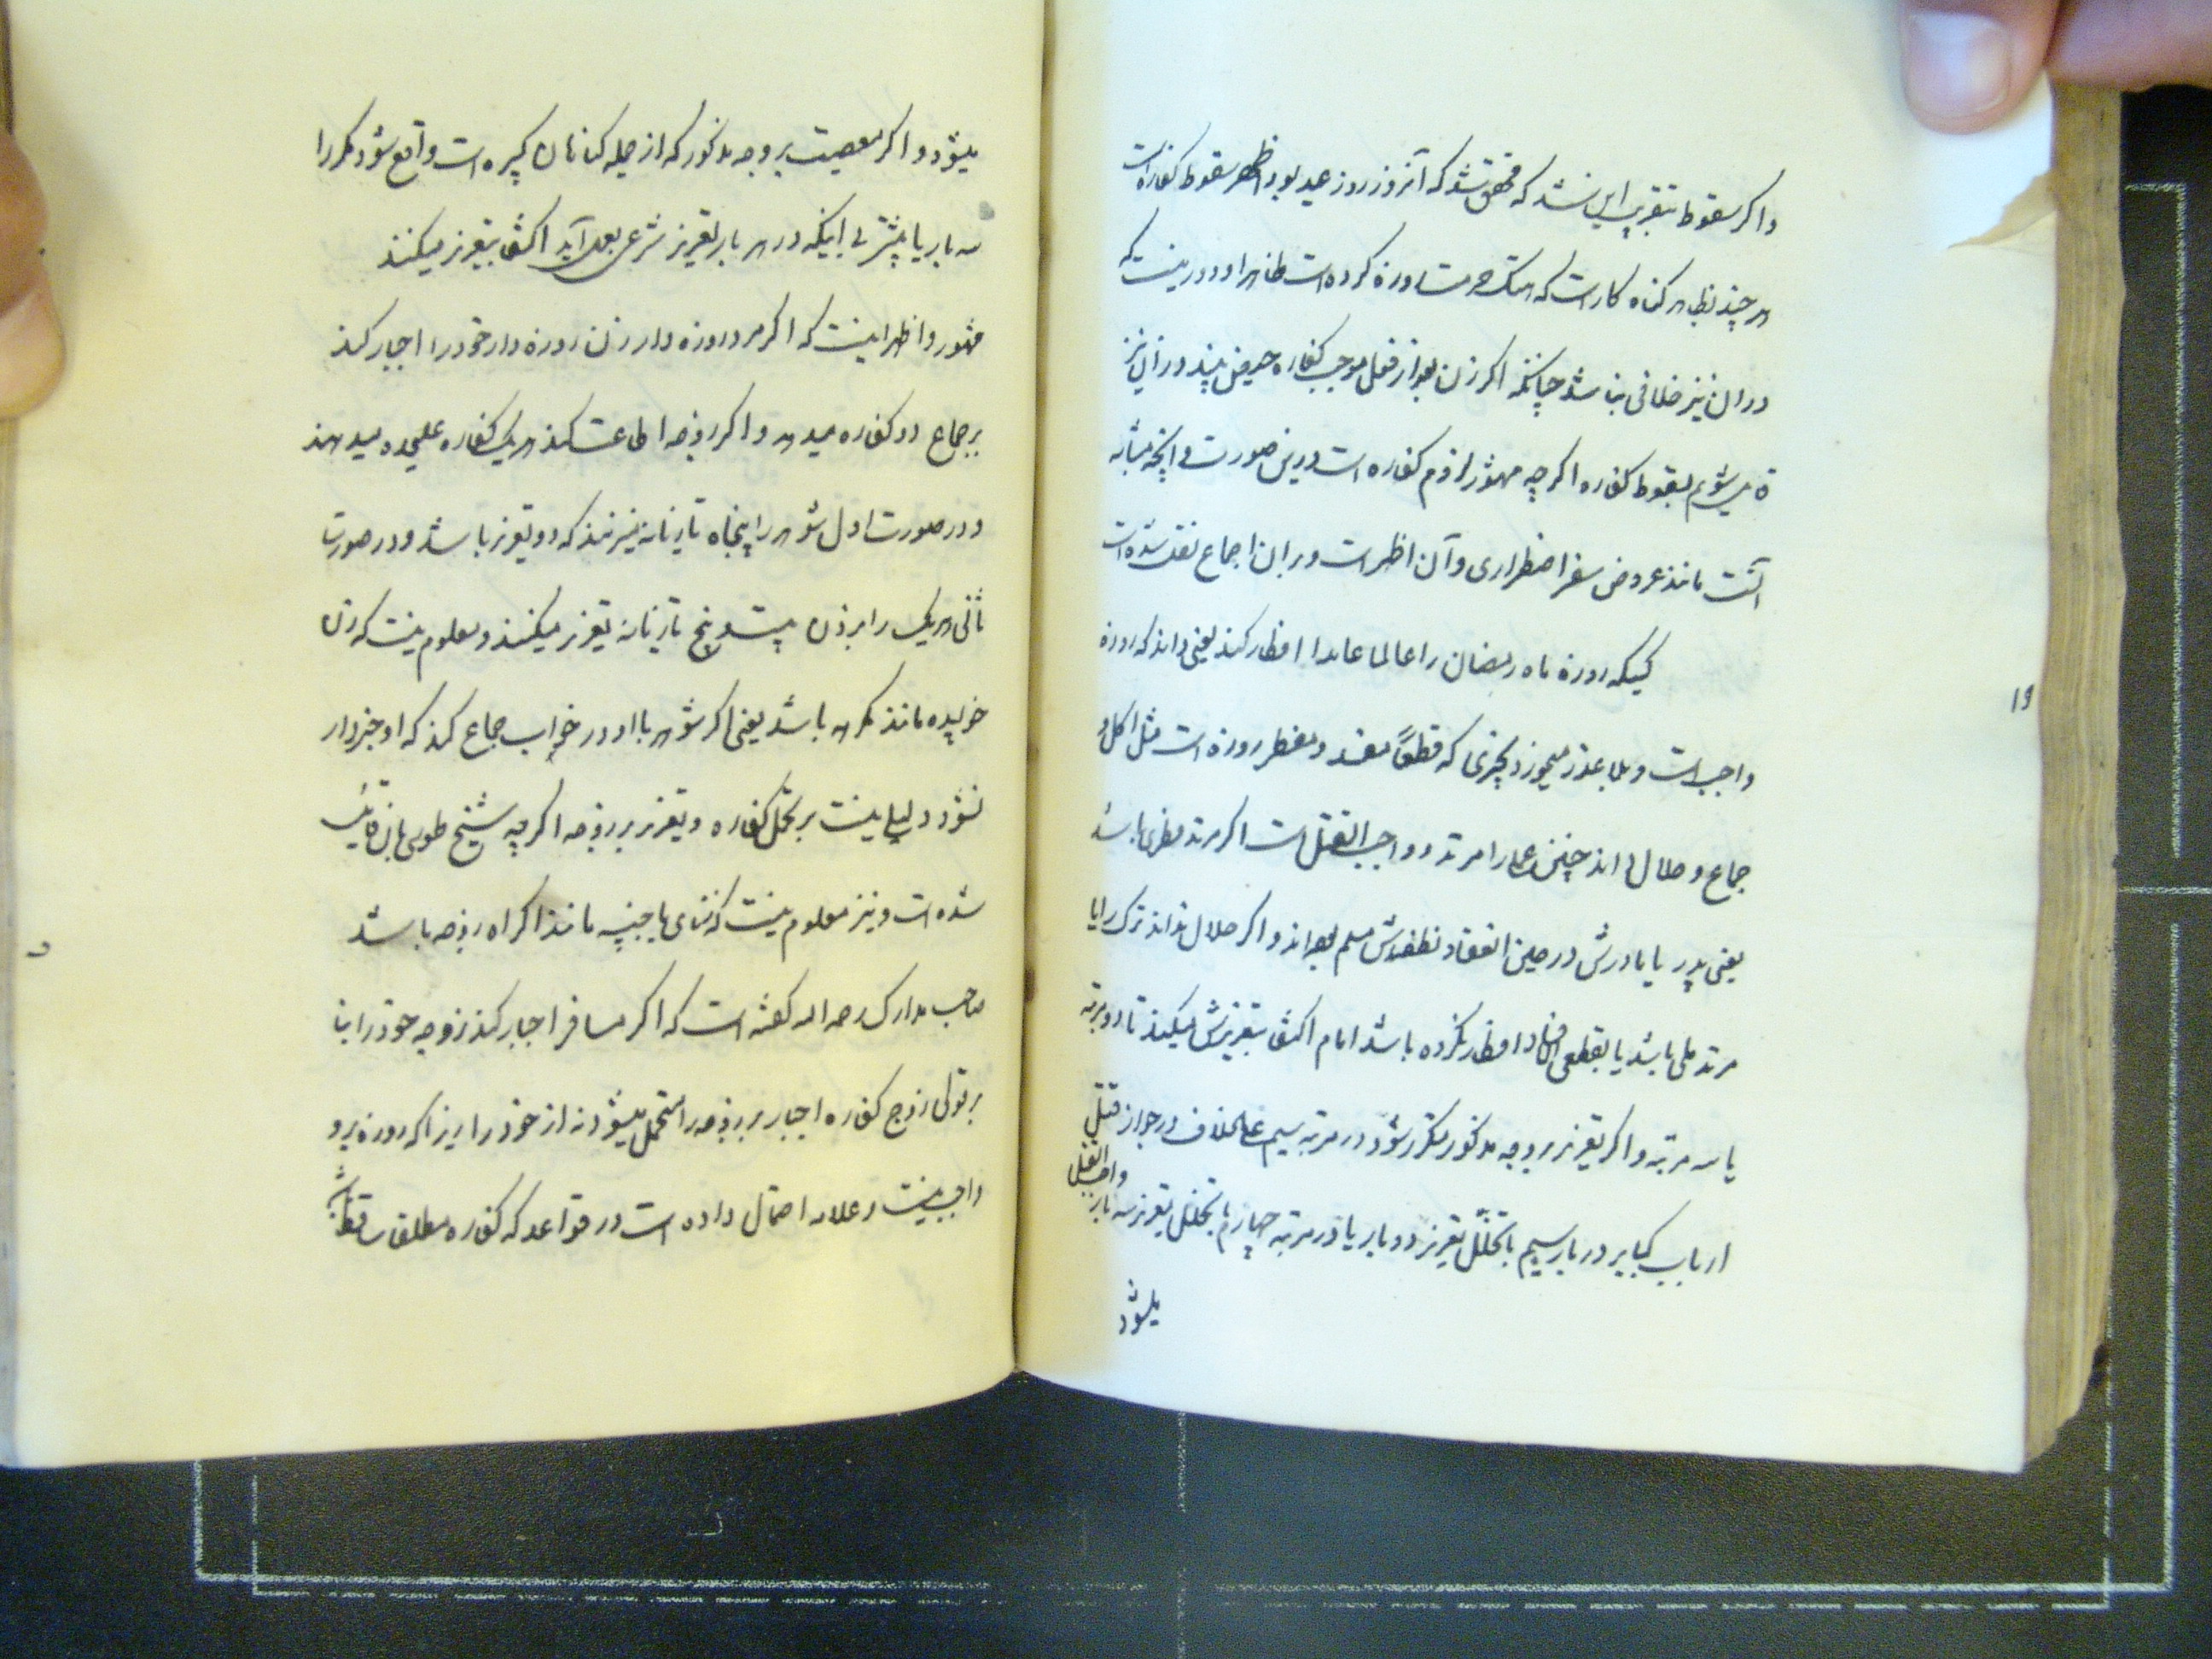 واکر سقوط بتقریب این نشد که محقق شد که آنروز روز عید بود اظهر سقوط کفاره است
هر چند بظاهر کناه کار است که هتک حرمت روزه کرده است ظاهرا و درینست که
دران نیز خلافی نباشد چنانکه اکر زن بعد از فعل موجب کفاره حیض بیند درآن نیز
قایل میشویم بسقوط کفاره اکرچه مشهور لزوم کفاره است درین صورت و آنچه بمثابه
آنست مانند عروض سفر اضطراری و آن اظهر است و بر ان اجماع نقل شده است
کسیکه روزه ماه رمضان را عالما عامدا افطار کند یعنی داند که روزه
واجب است و بلا عذر میخورد چیزی که قطعاً مفسد و مفطر روزه است مثل اکل و
جماع و حلال داند چنین عمل را مرتد و واجب القتل است اکر مرتد فطری باشد
یعنی پدر یا مادرش در حین انعقاد نطفه اش مسلم بوده اند و اکر حلال نداند ترک را یا
مرتد ملی باشد یا بقطعی الفساد افطار نکرده باشد امام اکتفا بتعزیرش میکند تا دو مرتبه
یا سه مرتبه و اکر تعزیر بر وجه مذکور مکرر شود در مرتبه سیم علی الخلاف در جواز قتل
ارباب کبایر در بار سیم با تخلل تعزیر دو بار یا در مرتبه چهارم با تخلل تعزیر سه بار واجب القتل
میشود
۱۹
میشود و اکر معصیت بر وجه مذکور که از جمله کناهان کبیره است واقع شود مکررا
سه بار یا بیشتر بی اینکه در هر بار تعزیر شرعی بعمل آید اکتفا بتعزیر میکنند
مشهور و اظهر اینست که اکر مرد روزه دار زن روزه دار خود را اجبار کند
بر جماع دو کفاره میدهد و اکر زوجه اطاعت کند هر یک کفاره علیحده میدهند
و در صورت اول شوهر را پنجاه تازیانه میزنند که دو تعزیر باشد و در صورت
ثانی هر یک را بزدن بیست و پنج تازیانه تعزیر میکنند و معلوم نیست که زن
خوابیده مانند مکره باشد یعنی اکر شوهر با او در خواب جماع کند که او خبردار
نشود دلیلی نیست بر تحمل کفاره و تعزیر بر زوجه اکرچه شیخ طوسی بان قایل
شده است و نیز معلوم نیست که زنای باجنبیه مانند اکراه زوجه باشد
صاحب مدارک رحمه الله کفته است که اکر مسافر اجبار کند زوجه خود را بنا
بر قولی زوج کفاره اجبار بر زوجه را متحمل میشود نه از خود را زیرا که روزه برو
واجب نیست و علامه احتمال داده است در قواعد که کفاره مطلقا ساقط باشد